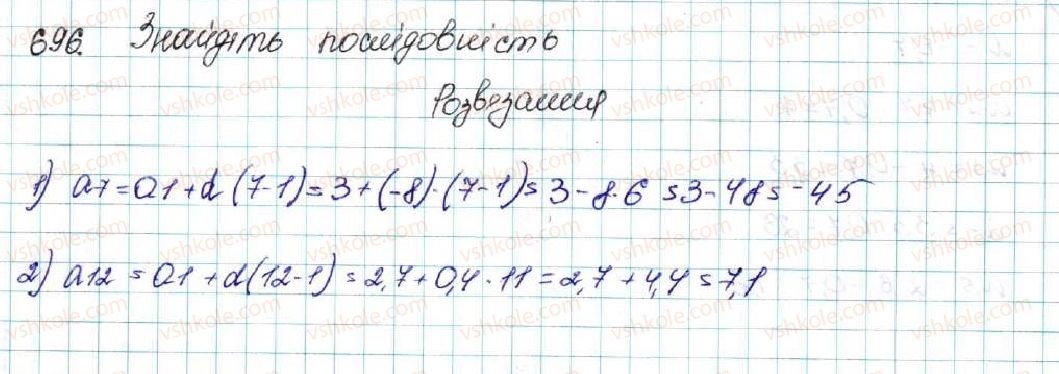 696. Знайдіть послідовність
Розвезання
1) a7 = a1 + d (7-1) = 3 + (-8) · (7-1) = 3 - 8 · 6 = 3 - 48 = -45
2) a12 = a1 + d(12-1) = 2,7 + 0,4 · 11 = 2,7 + 4,4 = 7,1